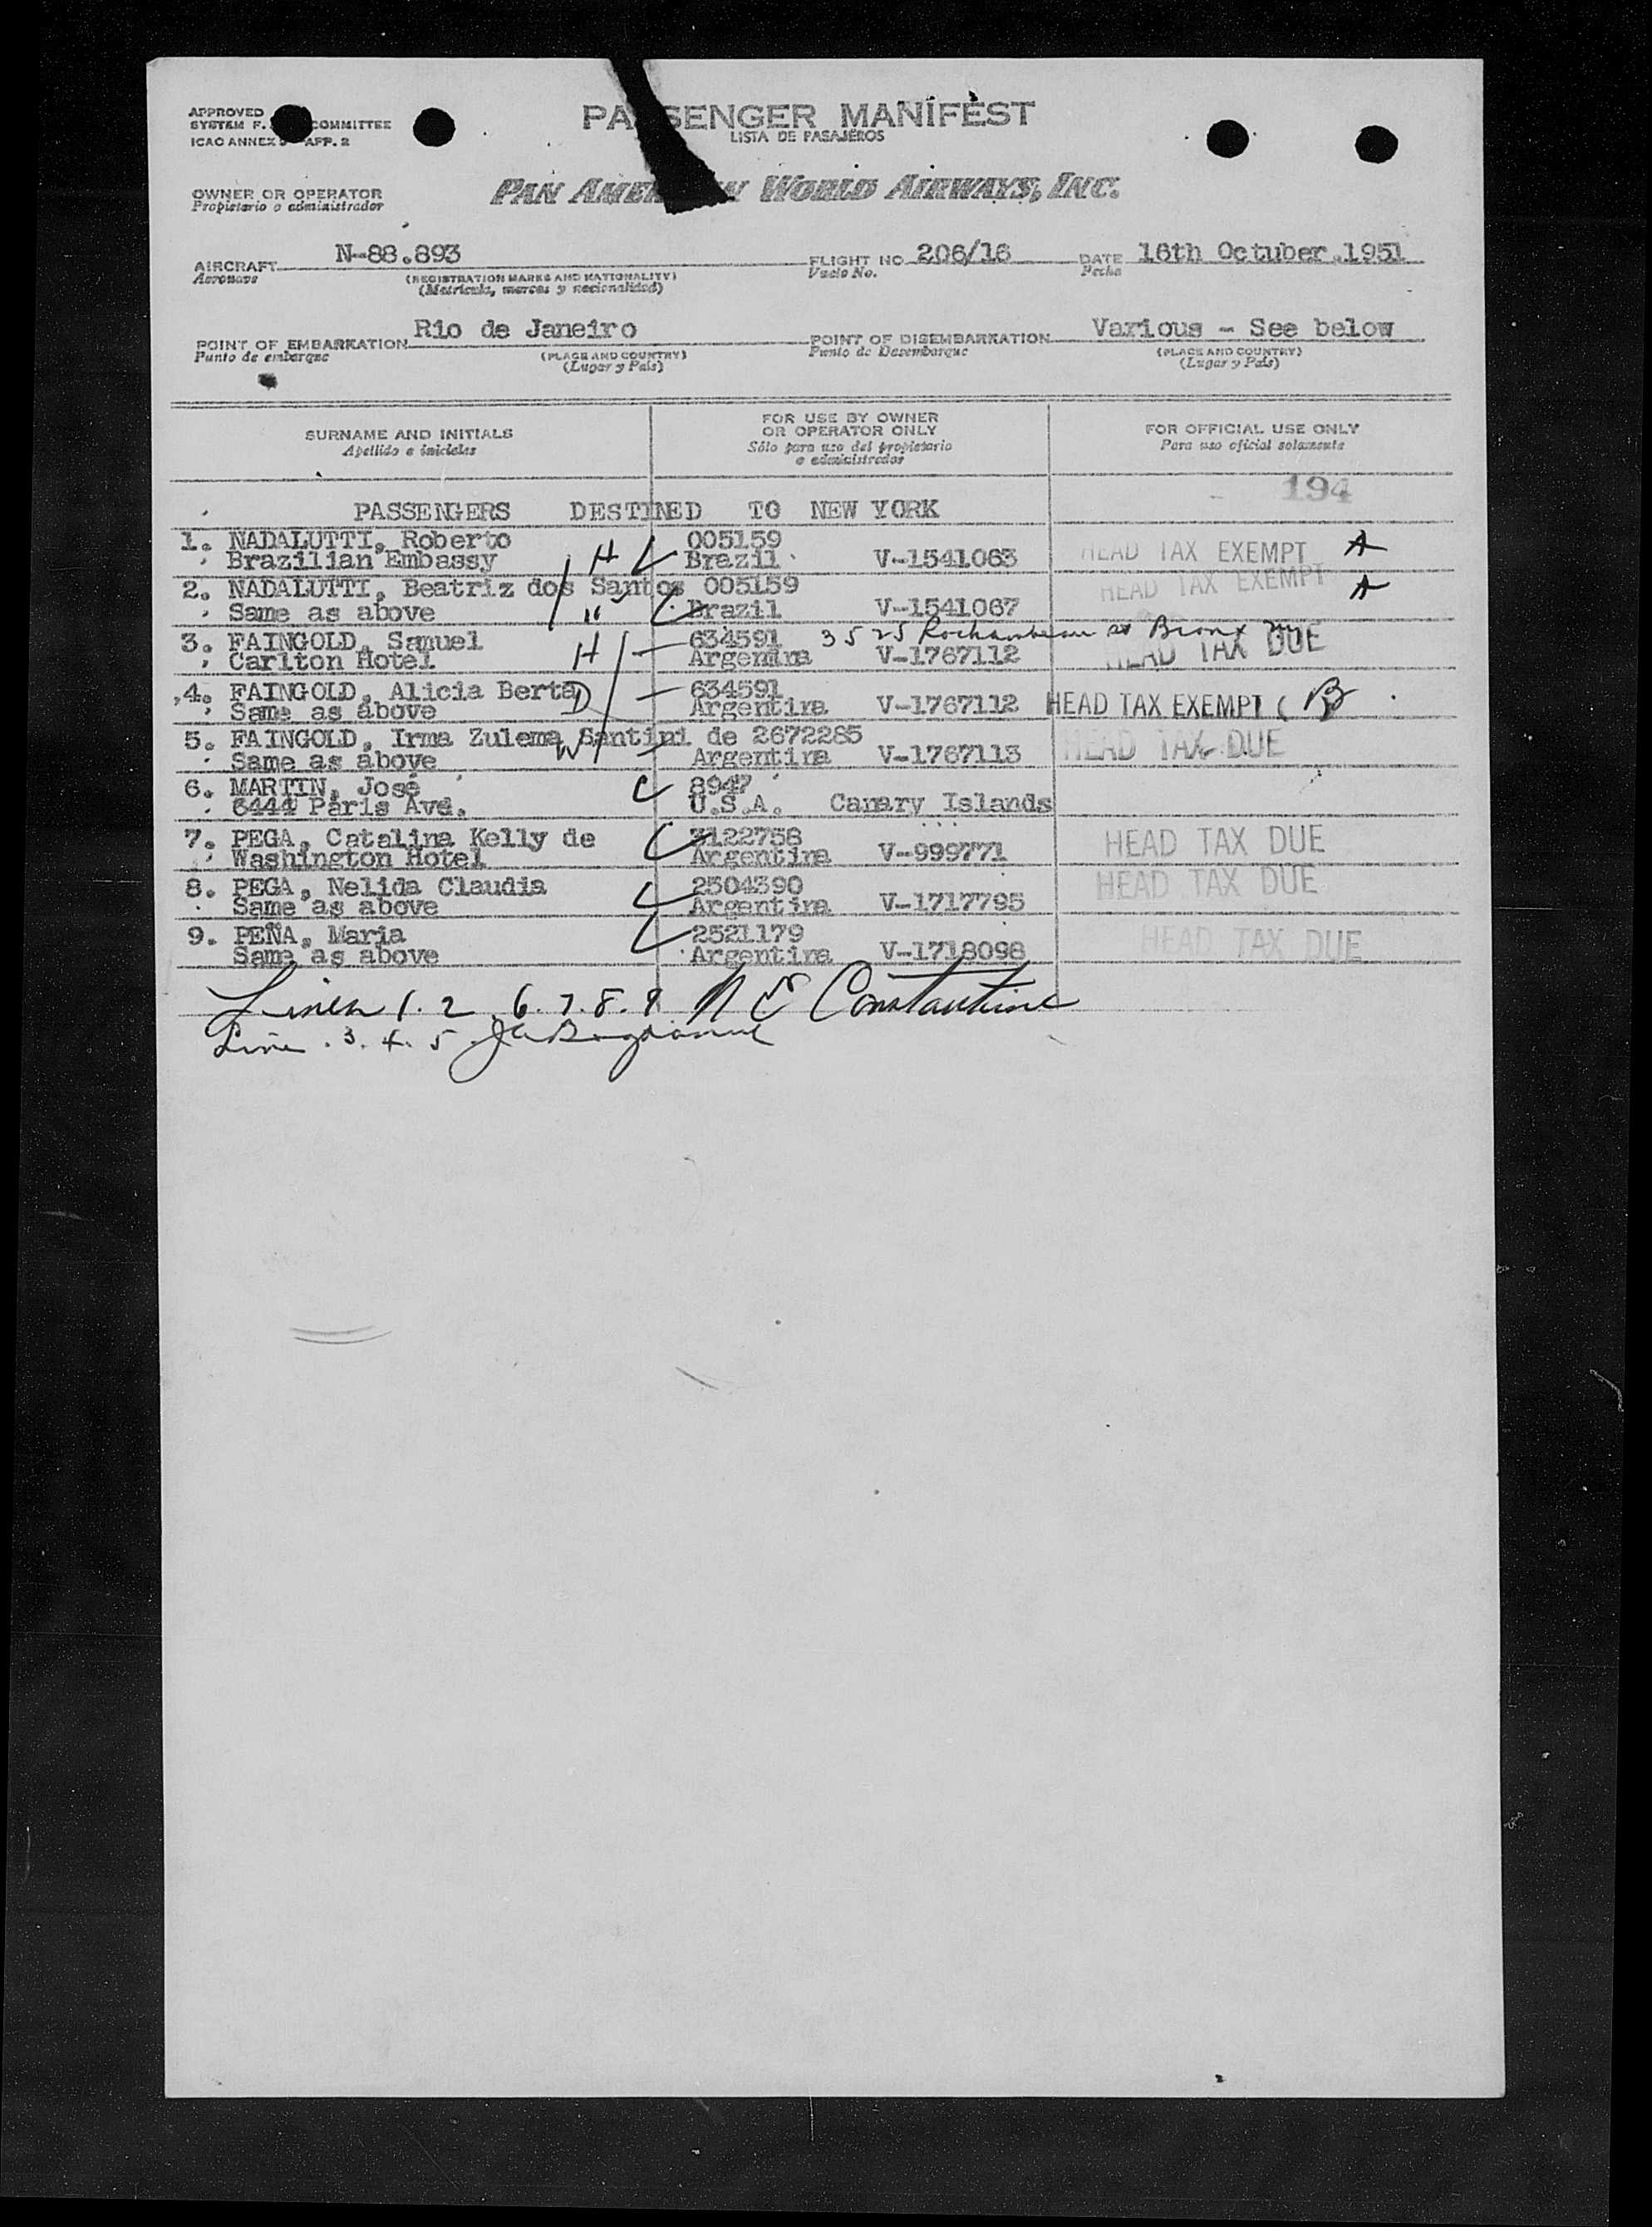 APPROVED
SYSTEM F. COMMITTEE
ICAO ANNEX 9 APP. 2
PASSENGER MANIFEST
LISTA DE PASAJEROS
OWNER OR OPERATOR
Propietario o administrador
PAN AMERICAN WORLD AIRWAYS, INC.
AIRCRAFT N-88.893 FLIGHT NO. 206/16 DATE 16th Octuber.1951
Aeronave (REGISTRATION MARKS AND NATIONALITY) Vuelo No. Fecha
(Matricula, marcas y nacionalidad)
POINT OF EMBARKATION Rio de Janeiro POINT OF DISEMBARKATION Various - See below
Punto de embarque (PLACE AND COUNTRY) Punto de Desembarque (PLACE AND COUNTRY)
(Lugar y País) (Lugar y País)
SURNAME AND INITIALS
Apellido e iniciales
FOR USE BY OWNER
OR OPERATOR ONLY
Sólo para uso del propietario
o administrador
FOR OFFICIAL USE ONLY
Para uso oficial solamente
194
PASSENGERS DESTINED TO NEW YORK
1. NADALUTTI, Roberto 005159
Brazilian Embassy H Brazil V-1541063 HEAD TAX EXEMPT A
2. NADALUTTI, Beatriz dos Santos 005159 HEAD TAX EXEMPT A
Same as above " Brazil V-1541067
3. FAINGOLD, Samuel 634591 3525 Rochambeau st Bronx
Carlton Hotel H Argentina V-1767112 HEAD TAX DUE
4. FAINGOLD, Alicia Berta D 634591
Same as above Argentina V-1767112 HEAD TAX EXEMPT ( B
5. FAINGOLD, Irma Zulema Santini de 2672285
Same as above W Argentina V-1767113 HEAD TAX DUE
6. MARTIN, José C 8947
6444 Paris Ave. U.S.A. Canary Islands
7. PEGA, Catalina Kelly de 3122758 HEAD TAX DUE
Washington Hotel Argentina V-999771
8. PEGA, Nelida Claudia 2504390 HEAD TAX DUE
Same as above Argentina V-1717795
9. PEÑA, Maria 2521179 HEAD TAX DUE
Same as above Argentina V-1718098
Lines 1. 2. 6. 7. 8. 9 N E Constantine
Line . 3. 4. 5